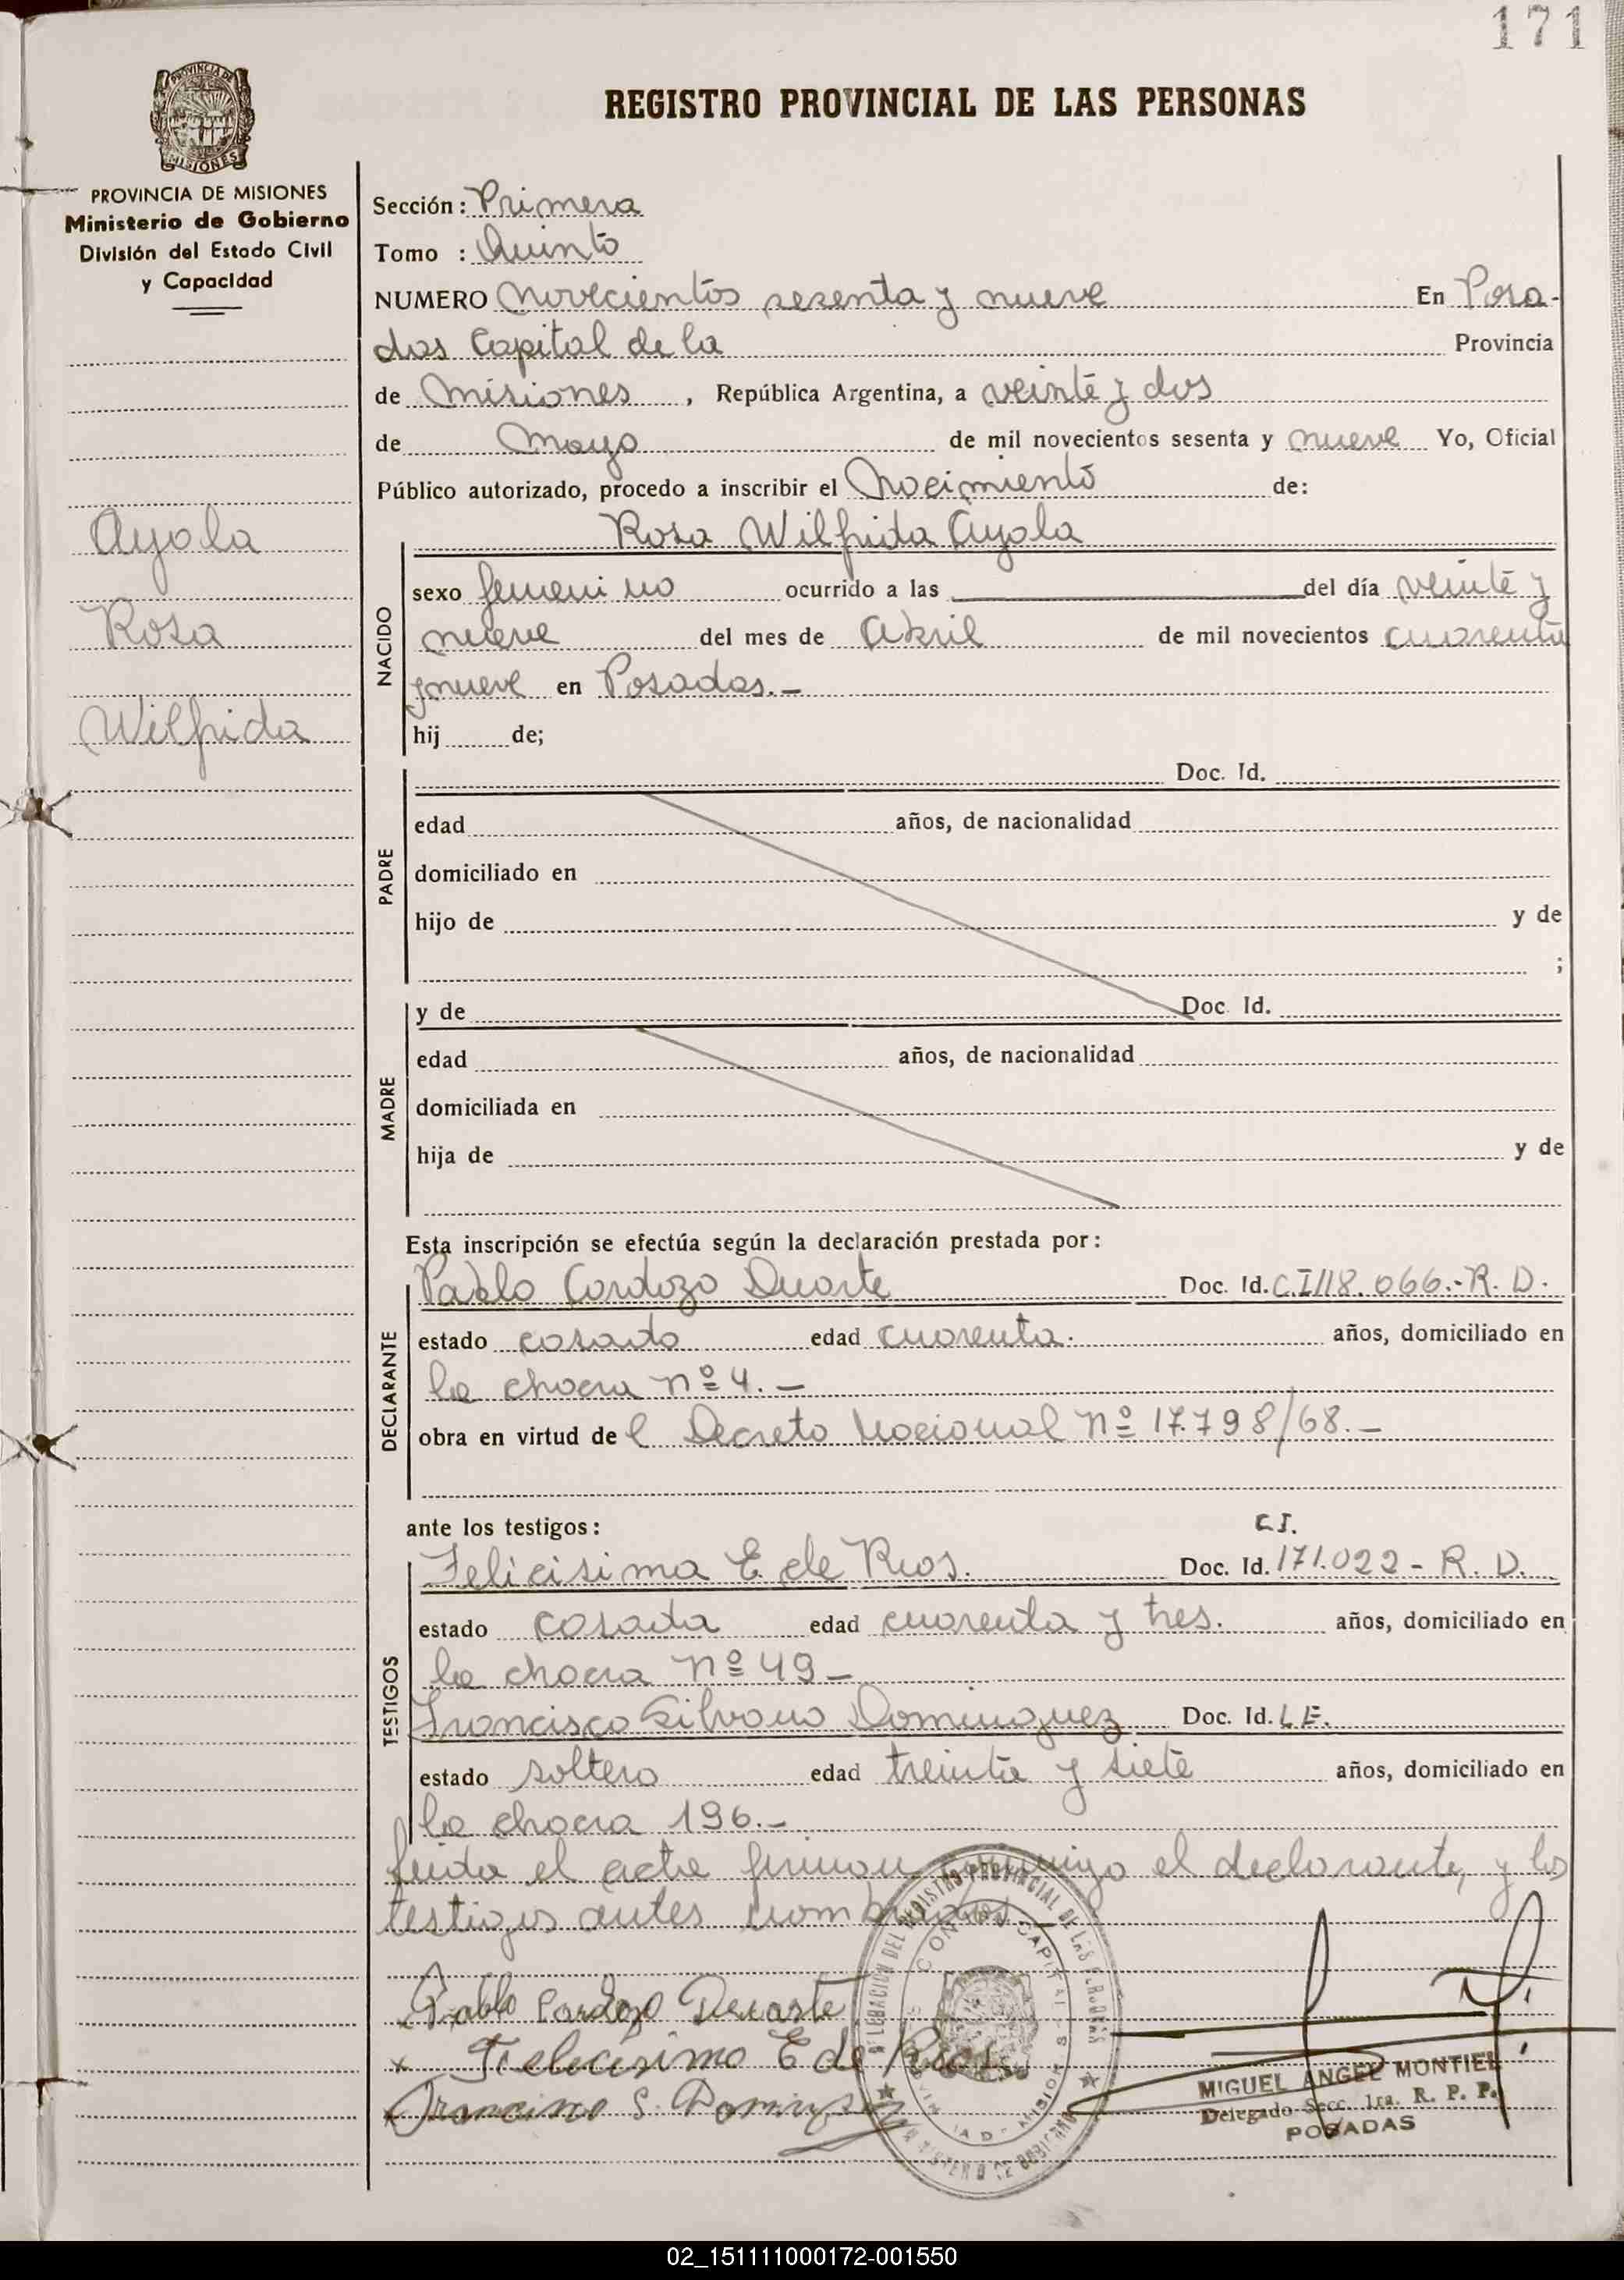 171
REGISTRO PROVINCIAL DE LAS PERSONAS
PROVINCIA DE MISIONES
Ministerio de Gobierno
División del Estado Civil
y Capacidad
Ayala
Rosa
Wilfrida
Sección: Primera
Tomo : Quinto
NUMERO novecientos sesenta y nueve En Posa-
das Capital de la Provincia
de Misiones, República Argentina, a veinte y dos
de Mayo de mil novecientos sesenta y nueve Yo, Oficial
Público autorizado, procedo a inscribir el Nacimiento de:
Rosa Wilfrida Ayala
NACIDO
sexo femenino ocurrido a las del día veinte y
nueve del mes de Abril de mil novecientos cuarenta
y nueve en Posadas.-
hij de;
PADRE
Doc. Id.
edad años, de nacionalidad
domiciliado en
hijo de y de
;
MADRE
y de Doc. Id.
edad años, de nacionalidad
domiciliada en
hija de y de
Esta inscripción se efectúa según la declaración prestada por:
DECLARANTE
Pablo Cardozo Duarte Doc. Id. C.I 118.066.-R.D.
estado casado edad cuarenta. años, domiciliado en
la chacra nº 4.-
obra en virtud de l Decreto Nacional Nº 17.798/68.-
ante los testigos:
TESTIGOS
C.I.
Felicisima E. de Rios. Doc. Id. 171.022-R.D.
estado casada edad cuarenta y tres. años, domiciliado en
la chacra nº 49-
Francisco Silvano Dominguez Doc. Id. L.E.
estado soltero edad treinta y siete años, domiciliado en
la chacra 196.-
leida el acta firman conmigo el declarante, y los
testigos antes nombrados.-
Pablo Cardozo Duarte
x Felicisima E de Rios
Francisco S. Dominguez
MIGUEL ANGEL MONTIEL
Delegado Secc. 1ra. R. P. P.
POSADAS
02_151111000172-001550